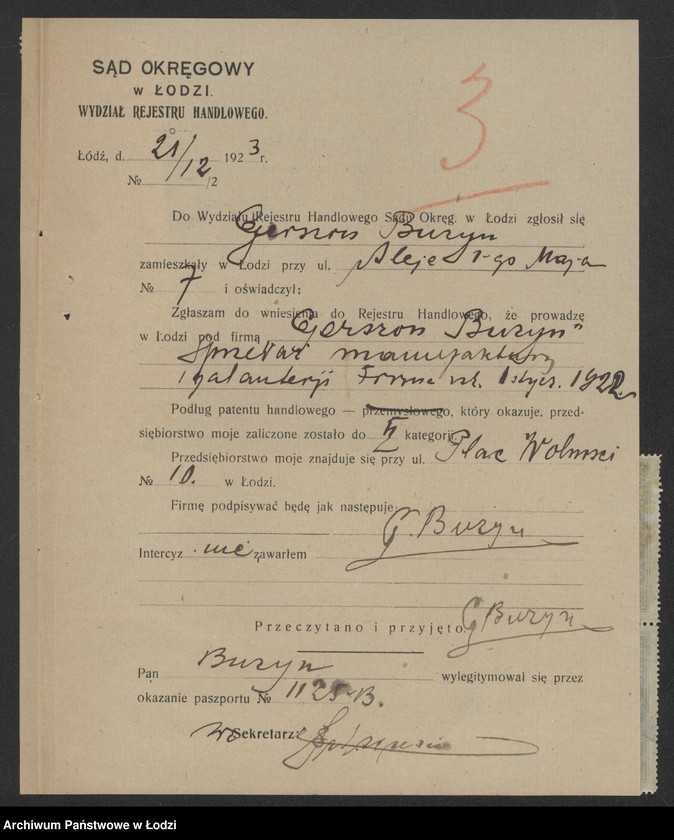 SĄD OKRĘGOWY
w ŁODZI.
WYDZIAŁ REJESTRU HANDLOWEGO.
3
Łódź, d. 21/12 1923 r.
№ /2
Do Wydziału Rejestru Handlowego Sądu Okręg. w Łodzi zgłosił się
Gerszon Buzyn
zamieszkały w Łodzi przy ul. Aleje 1-go Maja
№ 7 i oświadczył:
Zgłaszam do wniesienia do Rejestru Handlowego, że prowadzę
w Łodzi pod firmą "Gerszon Buzyn"
Sprzedaż manufaktury
i galanterji Firma 1 stycz. 1922
Podług patentu handlowego — przemysłowego, który okazuje, przed-
siębiorstwo moje zaliczone zostało do II kategorji.
Przedsiębiorstwo moje znajduje się przy ul. Plac Wolności
№ 10. w Łodzi.
Firmę podpisywać będę jak następuje:
G. Buzyn
Intercyz nie zawarłem
Przeczytano i przyjęto. G Buzyn
Pan Buzyn wylegitymował się przez
okazanie paszportu № 1125-B.
Sekretarz:
Archiwum Państwowe w Łodzi